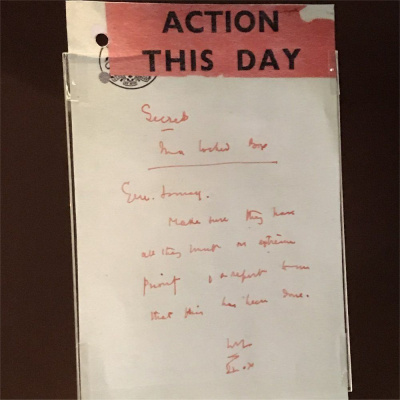 ACTION
THIS DAY
Secret
In a locked Box
Gen. Ismay.
Make sure they have
all they want on extreme
priority & report to me
that this has been done.